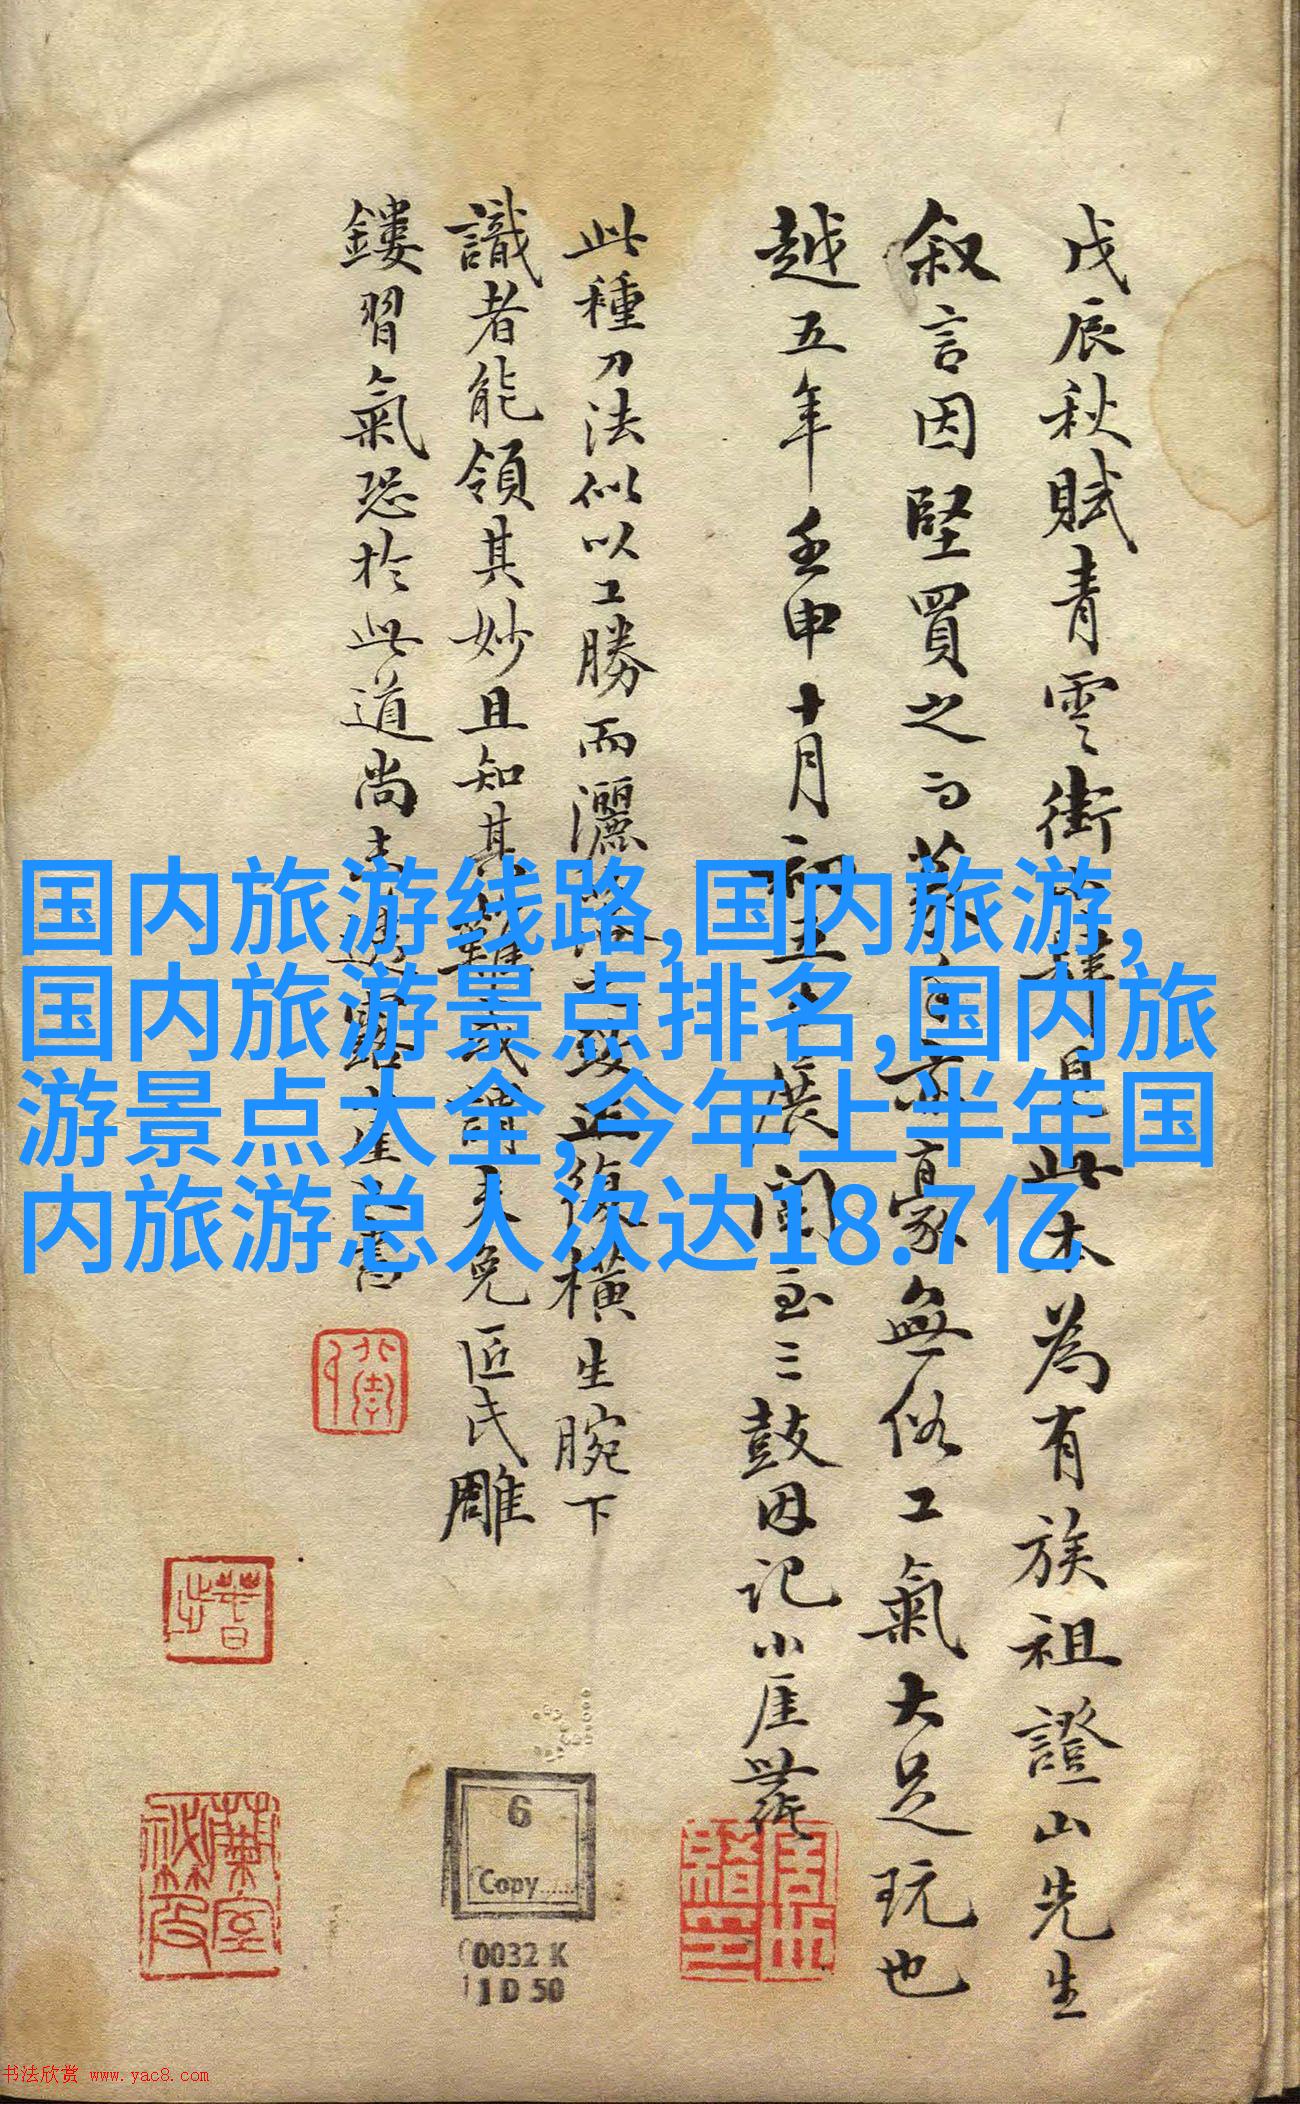 戊辰秋賦青雲街書肆見此本為有族祖證山先生
叙言因堅買之而篆自豪無俗工氣大足玩也
越五年壬申十月初五日展閱至三鼓因記小厓
此種刀法似以工勝而灑正復橫生腕下
識者能領其妙且知其難或謂未免匠氏雕
鏤習氣恐於此道尚未透露小厓又書
国内旅游线路,国内旅游,
国内旅游景点排名,国内旅
游景点大全,今年上半年国
内旅游总人次达18.7亿
6
Copy......
0032 K
1 D 50
书法欣赏 www.yac8.com